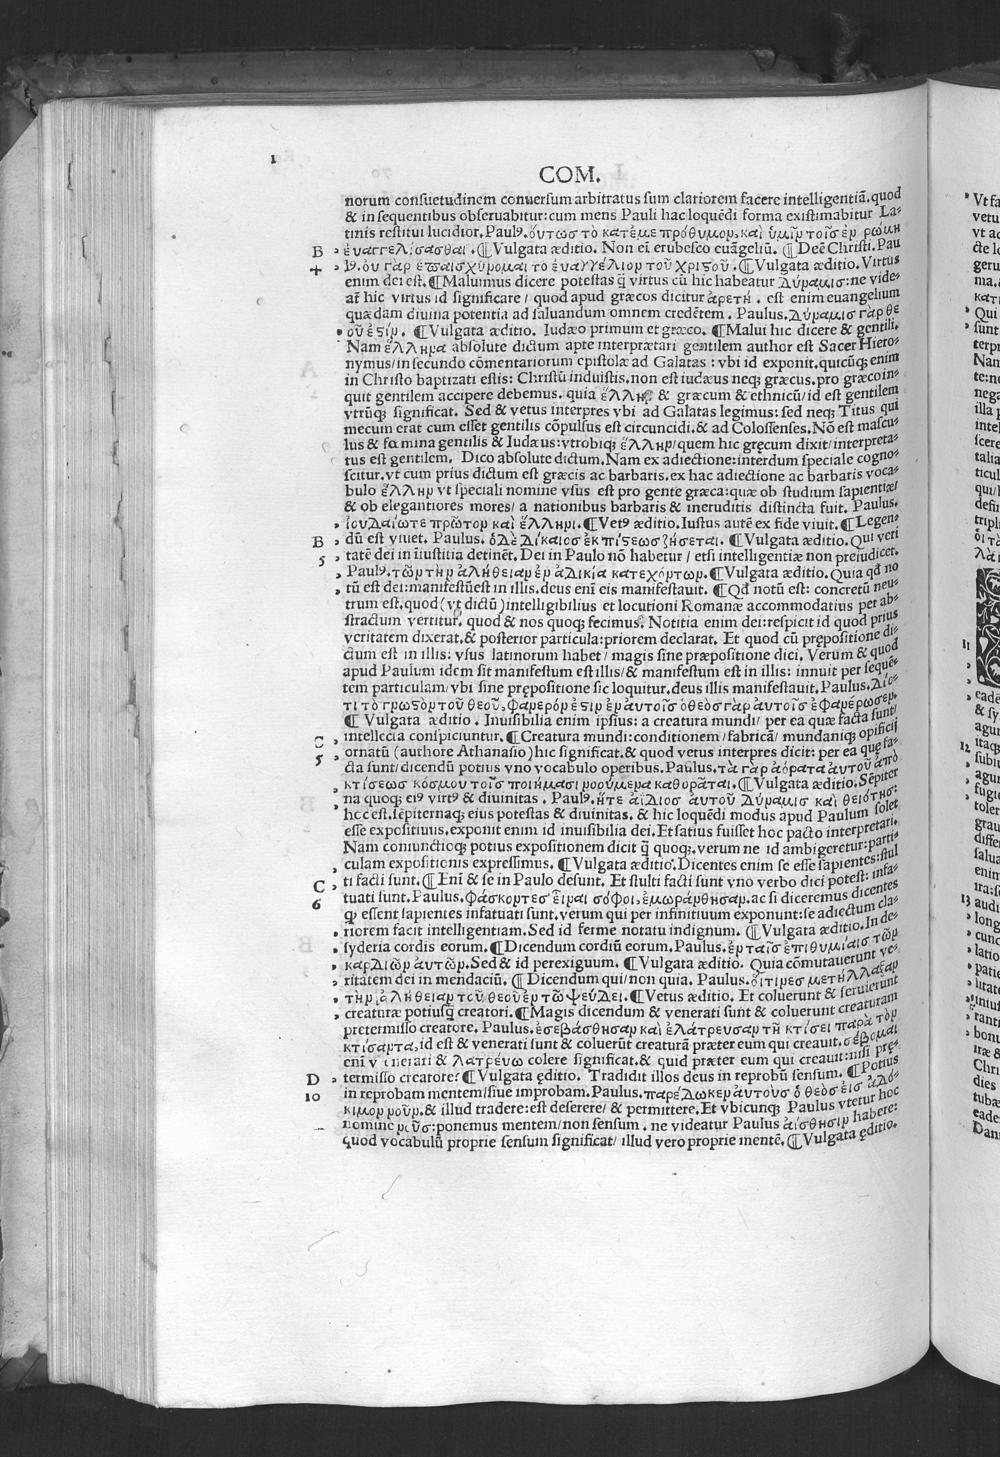 1
COM.
norum consuetudinem conuersum arbitratus sum clariorem facere intelligentiã. quod
& in sequentibus obseruabitur: cum mens Pauli hac loquẽdi forma existimabitur La-
tinis restitui lucidior. Paulꝰ. ὅυτωσ τὸ κατέμε πρόθυμον, καὶ ὑμῖν τοῖσ ἐν ρώμη
B , ἐυαγγελίσασθαι. ¶ Vulgata æditio. Non eñ erubesco euãgeliũ. ¶ Deẽ Christi. Pau
4 , lꝰ. ὀυ γὰρ ἐπαισχύνομαι το ἐυαγγέλιον τοῦ χριστοῦ. ¶ Vulgata æditio. Virtus
enim dei est. ¶ Maluimus dicere potestas q̃ virtus cũ hic habeatur Δύναμισ: ne vide-
at̃ hic virtus id significare / quod apud græcos dicitur ἀρετή. est enim euangelium
quædam diuina potentia ad saluandum omnem credẽtem. Paulus. Δύναμισ γὰρ θε
, οῦ ἐστίν. ¶ Vulgata æditio. Iudæo primum et græco. ¶ Malui hic dicere & gentili.
Nam ἕλληνα absolute dictum apte interprætari gentilem author est Sacer Hiero-
nymus / in secundo cõmentariorum epistolæ ad Galatas: vbi id exponit. quicũq; enim
in Christo baptizati estis: Christũ induistis. non est iudæus neq; græcus. pro græco in-
quit gentilem accipere debemus. quia ἕλλην & græcum & ethnicũ / id est gentilem
vtrũq; significat. Sed & vetus interpres vbi ad Galatas legimus: sed neq; Titus qui
mecum erat cum esset gentilis cõpulsus est circuncidi. & ad Colossenses. Nõ est mascu-
lus & fœmina gentilis & Iudæus: vtrobiq; ἕλλην / quem hic gręcum dixit / interpreta-
tus est gentilem. Dico absolute dictum. Nam ex adiectione: interdum speciale cogno-
scitur. vt cum prius dictum est græcis ac barbaris. ex hac adiectione ac barbaris voca-
bulo ἕλλην vt speciali nomine vsus est pro gente græca: quæ ob studium sapientiæ /
& ob elegantiores mores / a nationibus barbaris & ineruditis distincta fuit. Paulus.
, ἰουΔαίωτε πρῶτον καὶ ἕλληνι. ¶ Vetꝰ æditio. Iustus autẽ ex fide viuit. ¶ Legen-
B , dũ est viuet. Paulus. ὁΔὲ Δίκαιοσ ἐκ πίστεωσ ζήσεται. ¶ Vulgata æditio. Qui veri
5 , tatẽ dei in iĩustitia detinẽt. Dei in Paulo nõ habetur / etsi intelligentiæ non preiudicet.
, Paulꝰ. τῶν τὴν ἀλήθειαν ἐν ἀδικία κατεχόντων. ¶ Vulgata æditio. Quia qđ no
, tũ est dei: manifestũ est in illis. deus eni eis manifestauit. ¶ Qđ notũ est: concretũ neu-
trum est. quod (vt dictũ) intelligibilius et locutioni Romanæ accommodatius per ab-
stractum vertitur. quod & nos quoq; fecimus. Notitia enim dei: respicit id quod prius
veritatem dixerat. & posterior particula: priorem declarat. Et quod cũ prępositione di-
ctum est in illis: vsus latinorum habet / magis sine præpositione dici. Verum & quod
apud Paulum idem sit manifestum est illis / & manifestum est in illis: innuit per sequẽ-
tem particulam / vbi sine prępositione sic loquitur. deus illis manifestauit. Paulus. Διό-
τι τὸ γνωστὸν τοῦ θεοῦ, φανερόν ἐστιν ἐν αυτοῖσ ὁθεὸσ γὰρ αυτοῖσ ἐφανέρωσεν.
¶ Vulgata æditio. Inuisibilia enim ipsius: a creatura mundi / per ea quæ facta sunt /
C , intellecta conspiciuntur. ¶ Creatura mundi: conditionem / fabricã / mundaniq; opificij
5 ornatũ (authore Athanasio) hic significat. & quod vetus interpres dicit: per ea quę fa-
, cta sunt / dicendũ potius vno vocabulo operibus. Paulus. τὰ γὰρ ἀόρατα ἀυτοῦ ἀπὸ
, κτίσεωσ κόσμου τοῖσ ποιήμασι νοούμενα καθορᾶται. ¶ Vulgata æditio. Sẽpiter
na quoq; eiꝰ virtꝰ & diuinitas. Paulꝰ. ἥτε ἀίδιοσ ἀυτοῦ Δύναμισ καὶ θειότησ:
hoc est. sẽpiternaq; eius potestas & diuinitas. & hic loquẽdi modus apud Paulum solet
esse expositiuus. exponit enim id inuisibilia dei. Et satius fuisset hoc pacto interpretari.
Nam coniunctioq; potius expositionem dicit q̃ quoq;. verum ne id ambigeretur: parti-
, culam expositionis expressimus. ¶ Vulgata æditio. Dicentes enim se esse sapientes: stul
C , ti facti sunt. ¶ Eni & se in Paulo desunt. Et stulti facti sunt vno verbo dici potest: infa-
6 tuati sunt. Paulus. φάσκοντεσ εἶναι σόφοι, ἐμωράνθησαν. ac si diceremus dicentes
q; essent sapientes infatuati sunt. verum qui per infinitiuum exponunt: se adiectum cla-
, riorem facit intelligentiam. Sed id ferme notatu indignum. ¶ Vulgata æditio. In de-
, syderia cordis eorum. ¶ Dicendum cordiũ eorum. Paulus. ἐν ταῖσ ἐπιθυμίαισ τῶν
, καρΔιῶν ἀυτῶν. Sed & id perexiguum. ¶ Vulgata æditio. Quia cõmutauerunt ve-
, ritatem dei in mendaciũ. ¶ Dicendum qui / non quia. Paulus. ὅιτινεσ μετήλλαξαν
, τὴν ἀλήθειαν τοῦ θεοῦ ἐν τῶ ψεύΔει. ¶ Vetus æditio. Et coluerunt & seruierunt
, creaturæ potiusq̃ creatori. ¶ Magis dicendum & venerati sunt & coluerunt creaturam
pretermisso creatore. Paulus. ἐσεβάσθησαν καὶ ἐλάτρευσαν τῆ κτίσει παρὰ τὸν
κτίσαντα, id est & venerati sunt & coluerũt creaturã præter eum qui creauit. σέβομαι
eni venerari & λατρέυω colere significat. & quid præter eum qui creauit: nisi prę-
D , termisso creatore? ¶ Vulgata ęditio. Tradidit illos deus in reprobũ sensum. ¶ Potius
10 in reprobam mentem / siue improbam. Paulus. παρέΔωκεν ἀυτοὺσ ὁ θεὸσ εἰσ ἀδό-
κιμον νοῦν. & illud tradere: est deserere / & permittere. Et vbicunq; Paulus vtetur hoc
nomine νοῦσ: ponemus mentem / non sensum. ne videatur Paulus ἀίσθησιν habere:
quod vocabulũ proprie sensum significat / illud vero proprie mentẽ. ¶ Vulgata ęditio.